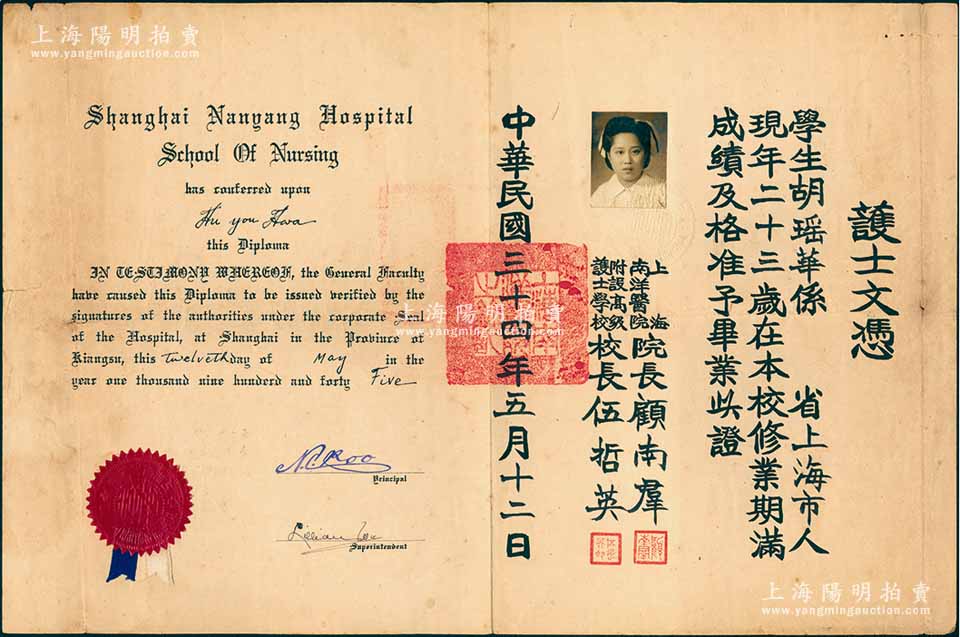 上海陽明拍賣
www.yangmingauction.com
Shanghai Nanyang Hospital
School Of Nursing
has conferred upon
Hu You Hwa
this Diploma
IN TESTIMONY WHEREOF, the General Faculty
have caused this Diploma to be issued verified by the
signatures of the authorities under the corporate Seal
of the Hospital, at Shanghai in the Province of
Kiangsu, this twelveth day of May in the
year one thousand nine hunderd and forty Five
Principal
Lillian Wu
Superintendent
護士文憑
學生胡瑶華係 省上海市人
現年二十三歲在本校修業期滿
成績及格准予畢業此證
上海
南洋醫院院長顧南羣
附設高級
護士學校校長伍哲英
中華民國三十四年五月十二日
上海陽明拍賣
www.yangmingauction.com
上海陽明拍賣
www.yangmingauction.com